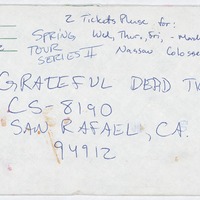 2 Tickets Please for:
SPRING Wed, Thur., Fri, -
TOUR Nassau
SERIES II
GRATEFUL DEAD
CS-8190
SAN RAFAEL, CA.
94912